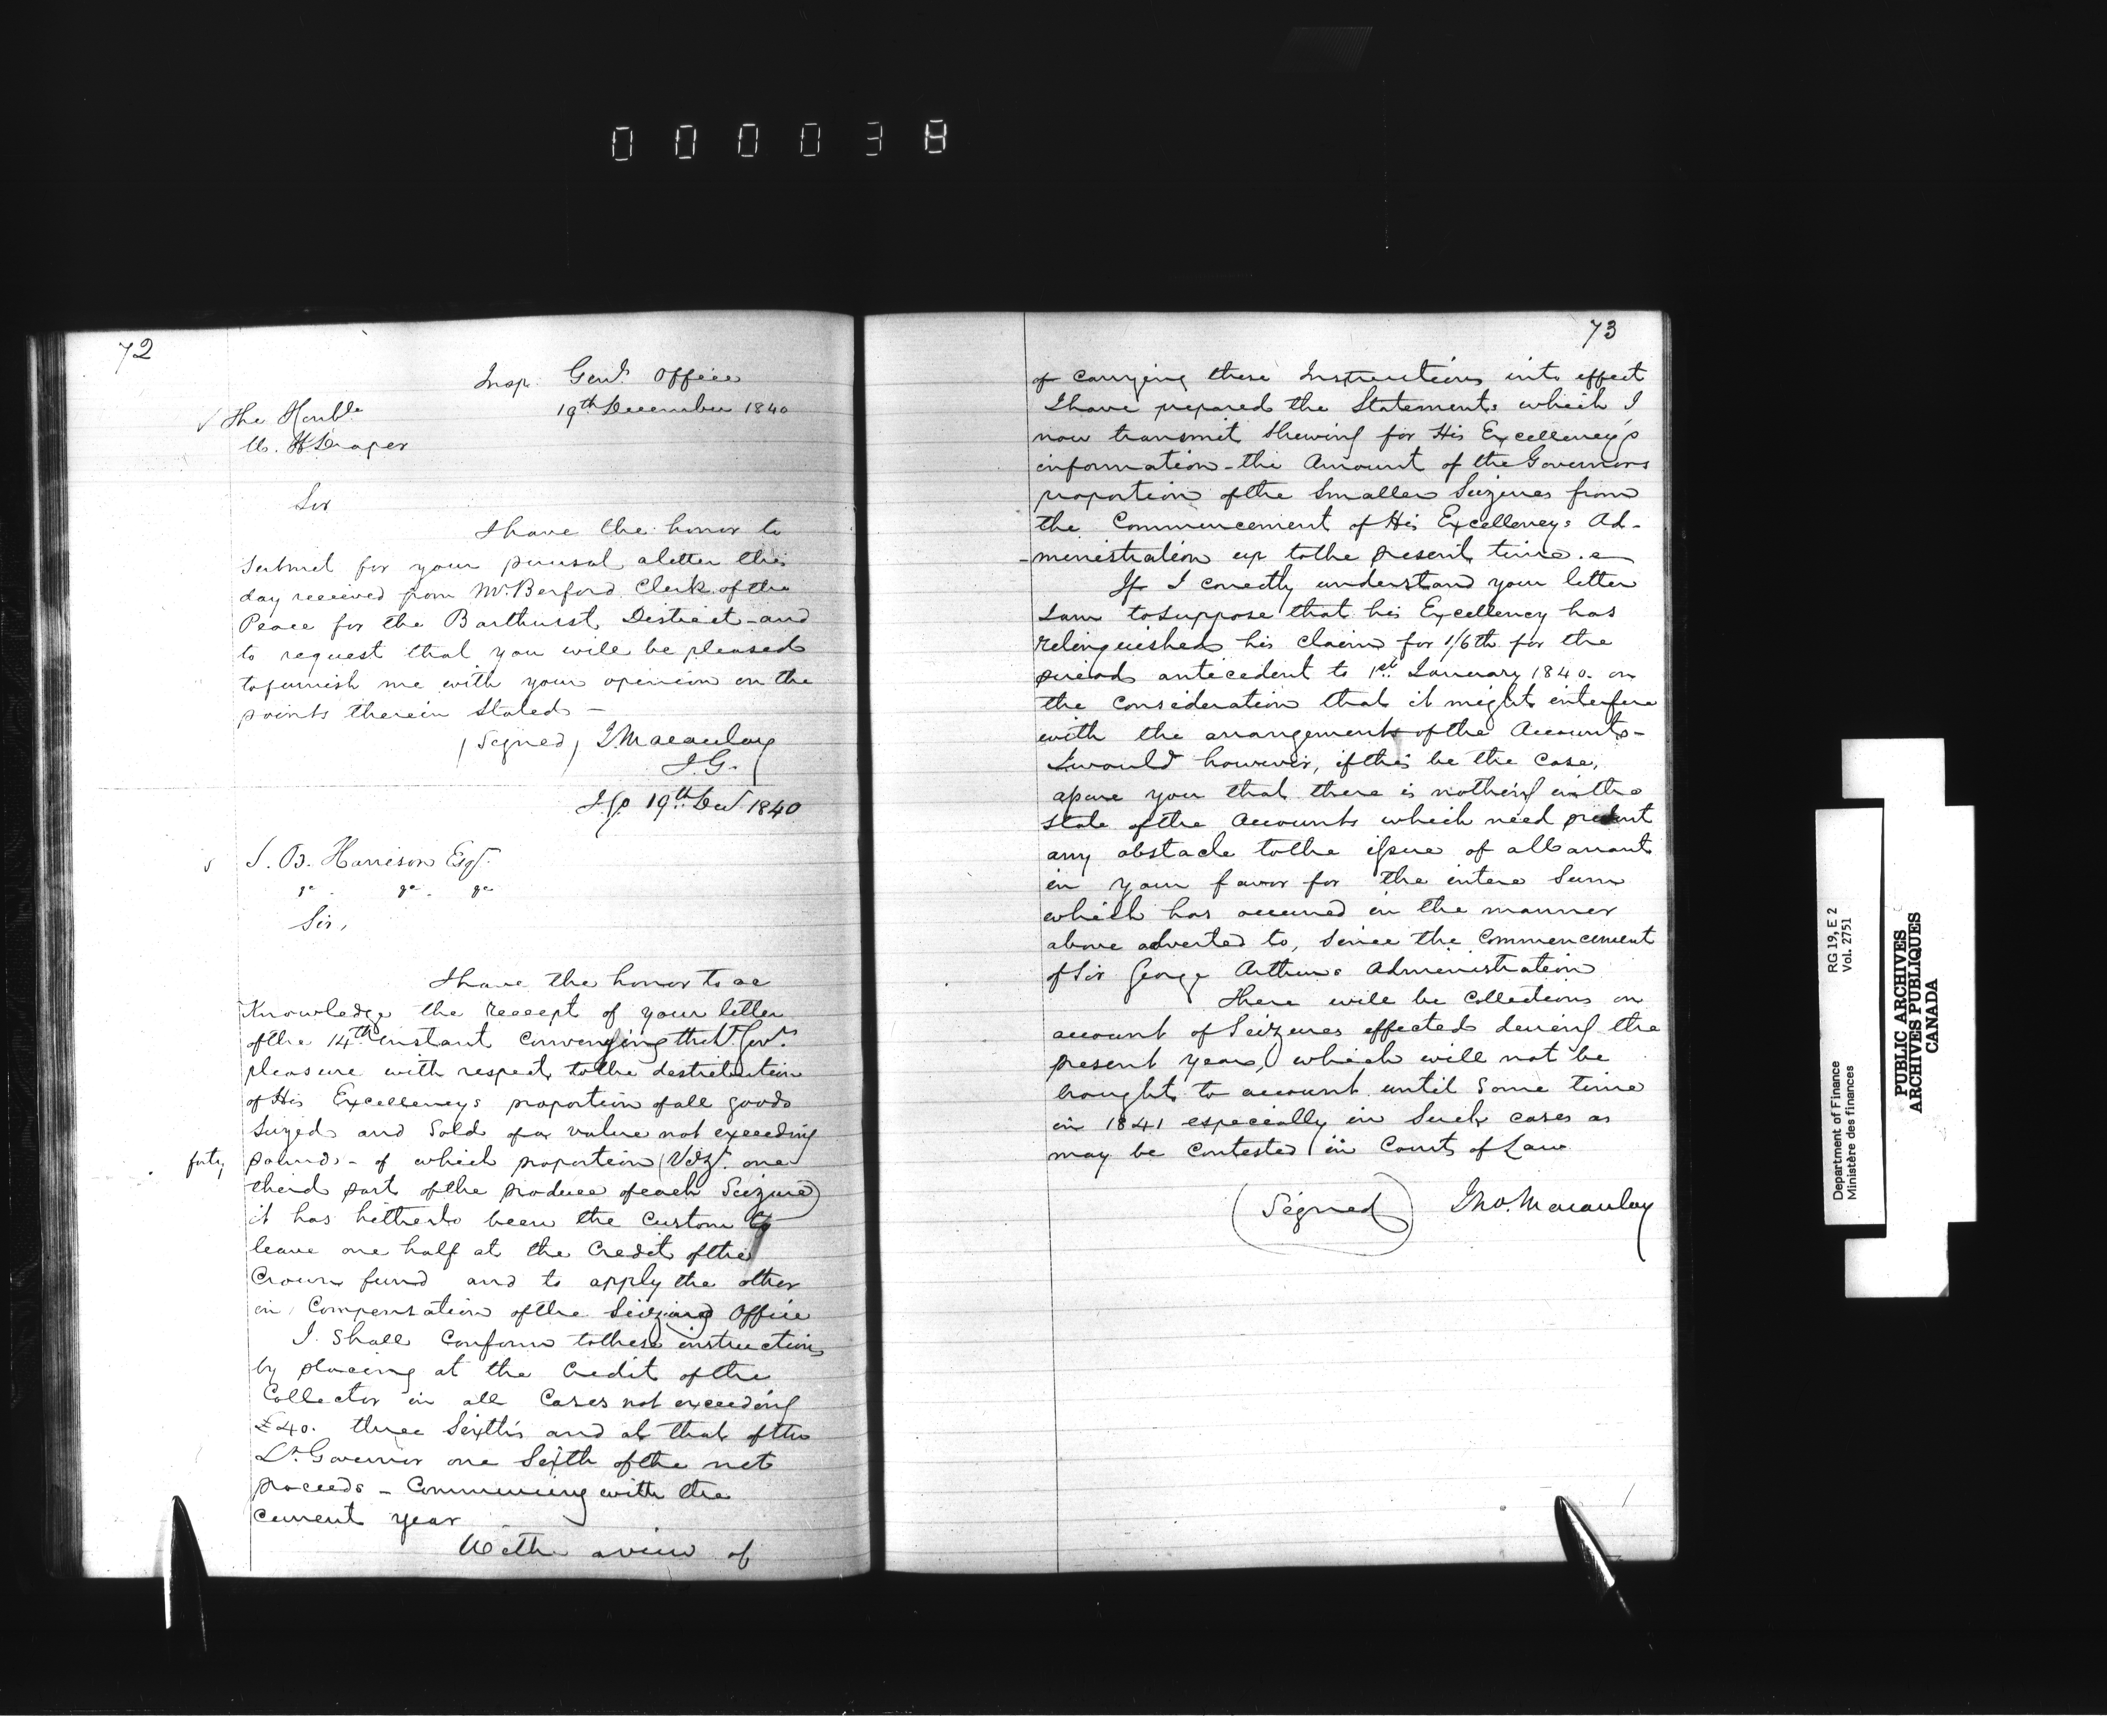 000038
72
Insp. Genl. Office
19th December 1840
The Honble
W. H Draper
Sir
I have the honor to
submit for your perusal a letter this
day received from Mr. Berford Clerk of the
Peace for the Barthurst District - and
to request that you will be pleased
to furnish me with your opinion on the
points therein stated -
(Signed) J Macaulay
I. G.
19th Decr 1840
S. B. Harrison Esqr.
Sir,
I have the honor to ac
knowledge the receept of your letter
of the 14th instant conveying the Lt. Govrs
pleasure with respect to the destribution
of His Excellencys proportion of all goods
seized and sold of a value not exceeding
forty pounds - of which proportion (Vizt. one
third part of the produce of each Seizure)
it has hitherto been the custom to
leave one half at the credit of the
Crown fund and to apply the other
in compensation of the Seizing Office
I shall conform to these instructions
by placing at the credit of the
Collector in all cases not exceeding
£40. three sixths and at that of the
Lt. Governor one sixth of the net
proceeds - Commencing with the
current year
With a view of
73
of carrying these Instructions into effect
I have prepared the Statements which I
now transmit shewing for His Excellency's
information - the amount of the Governors
proportion of the smaller Seizures from
the Commencement of His Excellencys Ad-
-ministration up to the present time.
If I correctly understand your letter
I am to suppose that his Excellency has
relinquished his claim for 1/6th for the
period antecedent to 1st January 1840. on
the consideration that it might interfere
with the arrangement of the Accounts -
I would however, if this be the case,
assure you that there is nothing in the
state of the Accounts which need present
any obstacle to the issue of a Warrant
in your favor for the entire sum
which has accrued in the manner
above adverted to, since the commencement
of Sir George Arthurs Administration
There will be collections on
account of Seizures effected during the
present year, which will not be
brought to account until some time
in 1841 especially in such cases as
may be contested in Courts of Law
(Signed) Jno. Macaulay
Department of Finance
Ministère des finances
RG 19, E 2
Vol. 2751
PUBLIC ARCHIVES
ARCHIVES PUBLIQUES
CANADA